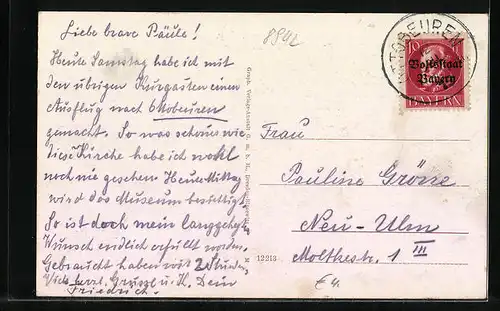 Liebe brave Päule!
Heute Samstag habe ich mit
den übrigen Kurgästen einen
Ausflug nach Ottobeuren
gemacht. So was schönes wie
diese Kirche habe ich wohl
noch nie gesehen. Heute Mittag
wird das Museum besichtigt.
So ist doch mein langgehegter
Wunsch endlich erfüllt worden.
Gebraucht haben wir 2 Stunden
Viele herzl. Grüsse u. K. Dein
Friedrich.
8942
OTTOBEUREN
10
Volksstaat
Bayern
BAYERN
Frau
Pauline Gröne
Neu-Ulm
Moltkestr. 1
III
12213
€4